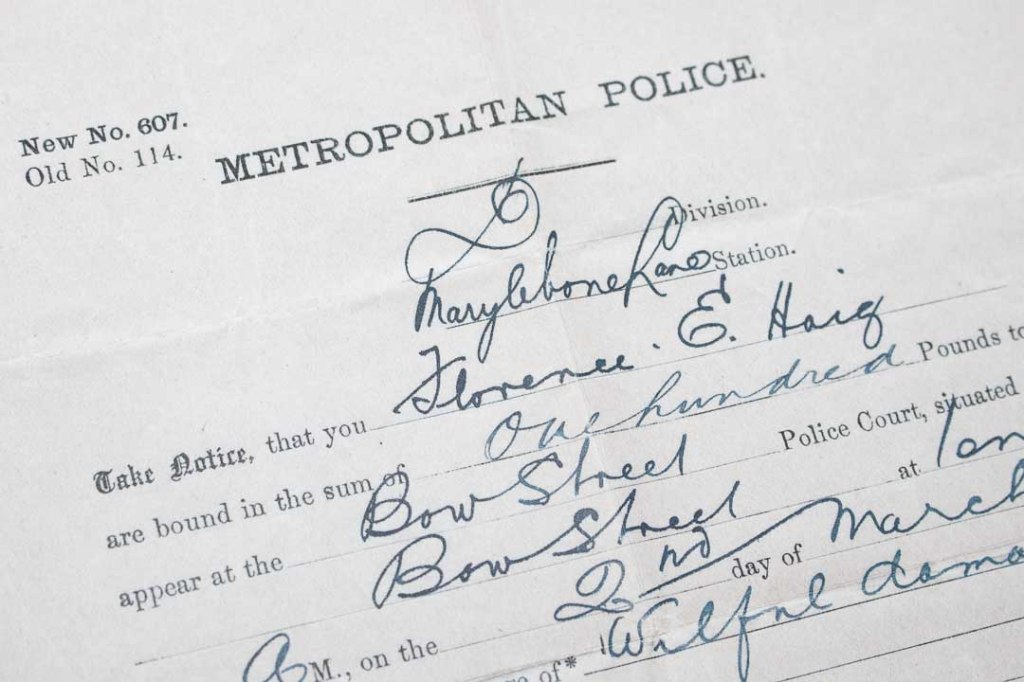 New No. 607.
Old No. 114.
METROPOLITAN POLICE.
D Division.
Marylebone Lane Station.
Take Notice, that you Florence E. Haig
are bound in the sum of One hundred Pounds to
appear at the Bow Street Police Court, situated
Bow Street at Ten
A M., on the 2nd day of March
of* Wilful dama